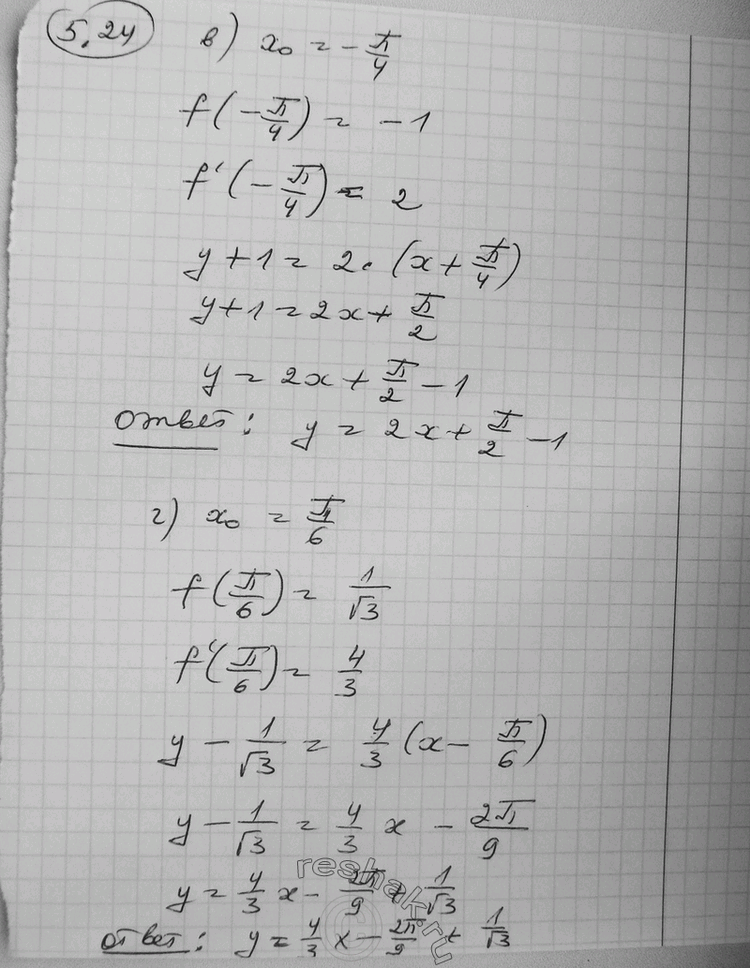 5.24 в) x₀ = -π/4
f(-π/4) = -1
f'(-π/4) = 2
y + 1 = 2·(x + π/4)
y + 1 = 2x + π/2
y = 2x + π/2 - 1
Ответ: y = 2x + π/2 - 1
г) x₀ = π/6
f(π/6) = 1/√3
f'(π/6) = 4/3
y - 1/√3 = 4/3 (x - π/6)
y - 1/√3 = 4/3 x - 2π/9
y = 4/3 x - 2π/9 + 1/√3
Ответ: y = 4/3 x - 2π/9 + 1/√3
reshak.ru
©